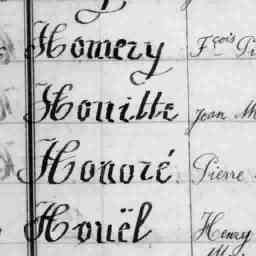 Homery Fçois
Houitte Jean
Honoré Pierre
Houël Henry